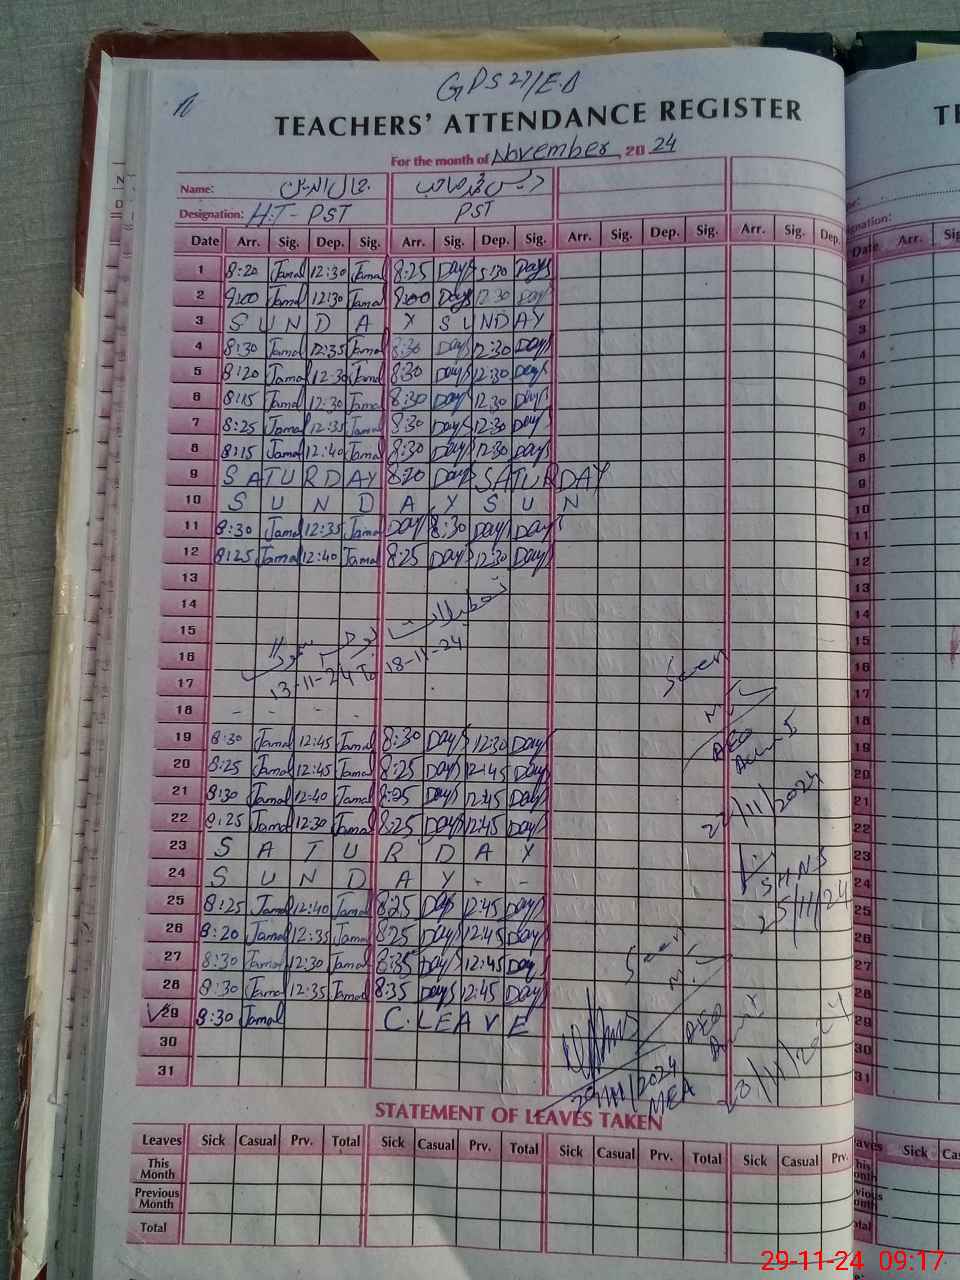 GPS 27/E.B
TEACHERS' ATTENDANCE REGISTER
For the month of November, 2024
Name: جمال الدین
Designation: H.T - PST PST
Date Arr. Sig. Dep. Sig. Arr. Sig. Dep. Sig. Arr. Sig. Dep. Sig. Arr. Sig. Dep.
1 8:20 Jamal 12:30 Jamal 8:25 Days
2 9:00 Jamal 12:30 Jamal Days 12:30 Days
3 S U N D A Y SUNDAY
4 8:30 Jamal 12:35 Jamal 8:30 Days 12:30 Days
5 8:20 Jamal 12:30 Jamal 8:30 Days 12:30 Days
6 8:15 Jamal 12:30 Jamal 8:30 Days 12:30 Days
7 8:25 Jamal 12:35 Jamal 8:30 Days 12:30 Days
8 8:15 Jamal 12:40 Jamal 8:30 Days 12:30 Days
9 SATURDAY 8:20 Days SATURDAY
10 S U N D A Y S U N
11 8:30 Jamal 12:35 Jamal Days 8:30 Days Days
12 8:25 Jamal 12:40 Jamal 8:25 Days 12:30 Days
13
14
15 تعطیلات
16
17 13-11-24 To 18-11-24
18
19 8:30 Jamal 12:45 Jamal 8:30 Days 12:30 Days
20 8:25 Jamal 12:45 Jamal 8:25 Days 12:45 Days
21 8:30 Jamal 12:40 Jamal 8:25 Days 12:45 Days
22 8:25 Jamal 12:30 Jamal 8:25 Days 12:45 Days
23 S A T U R D A Y
24 S U N D A Y - -
25 8:25 Jamal 12:40 Jamal 8:25 Days 12:45 Days
26 8:20 Jamal 12:35 Jamal 8:25 Days 12:45 Days
27 8:30 Jamal 12:30 Jamal 8:35 Days 12:45 Days
28 8:30 Jamal 12:35 Jamal 8:35 Days 12:45 Days
29 8:30 Jamal C. LEAVE
30
31
Seen
AEO
/11/2024
SHNS
25/11/24
Seen
AEO
/11/2024
29/11/2024
MEA
STATEMENT OF LEAVES TAKEN
Leaves Sick Casual Prv. Total Sick Casual Prv. Total Sick Casual Prv. Total Sick Casual Prv.
This Month
Previous Month
Total
29-11-24 09:17